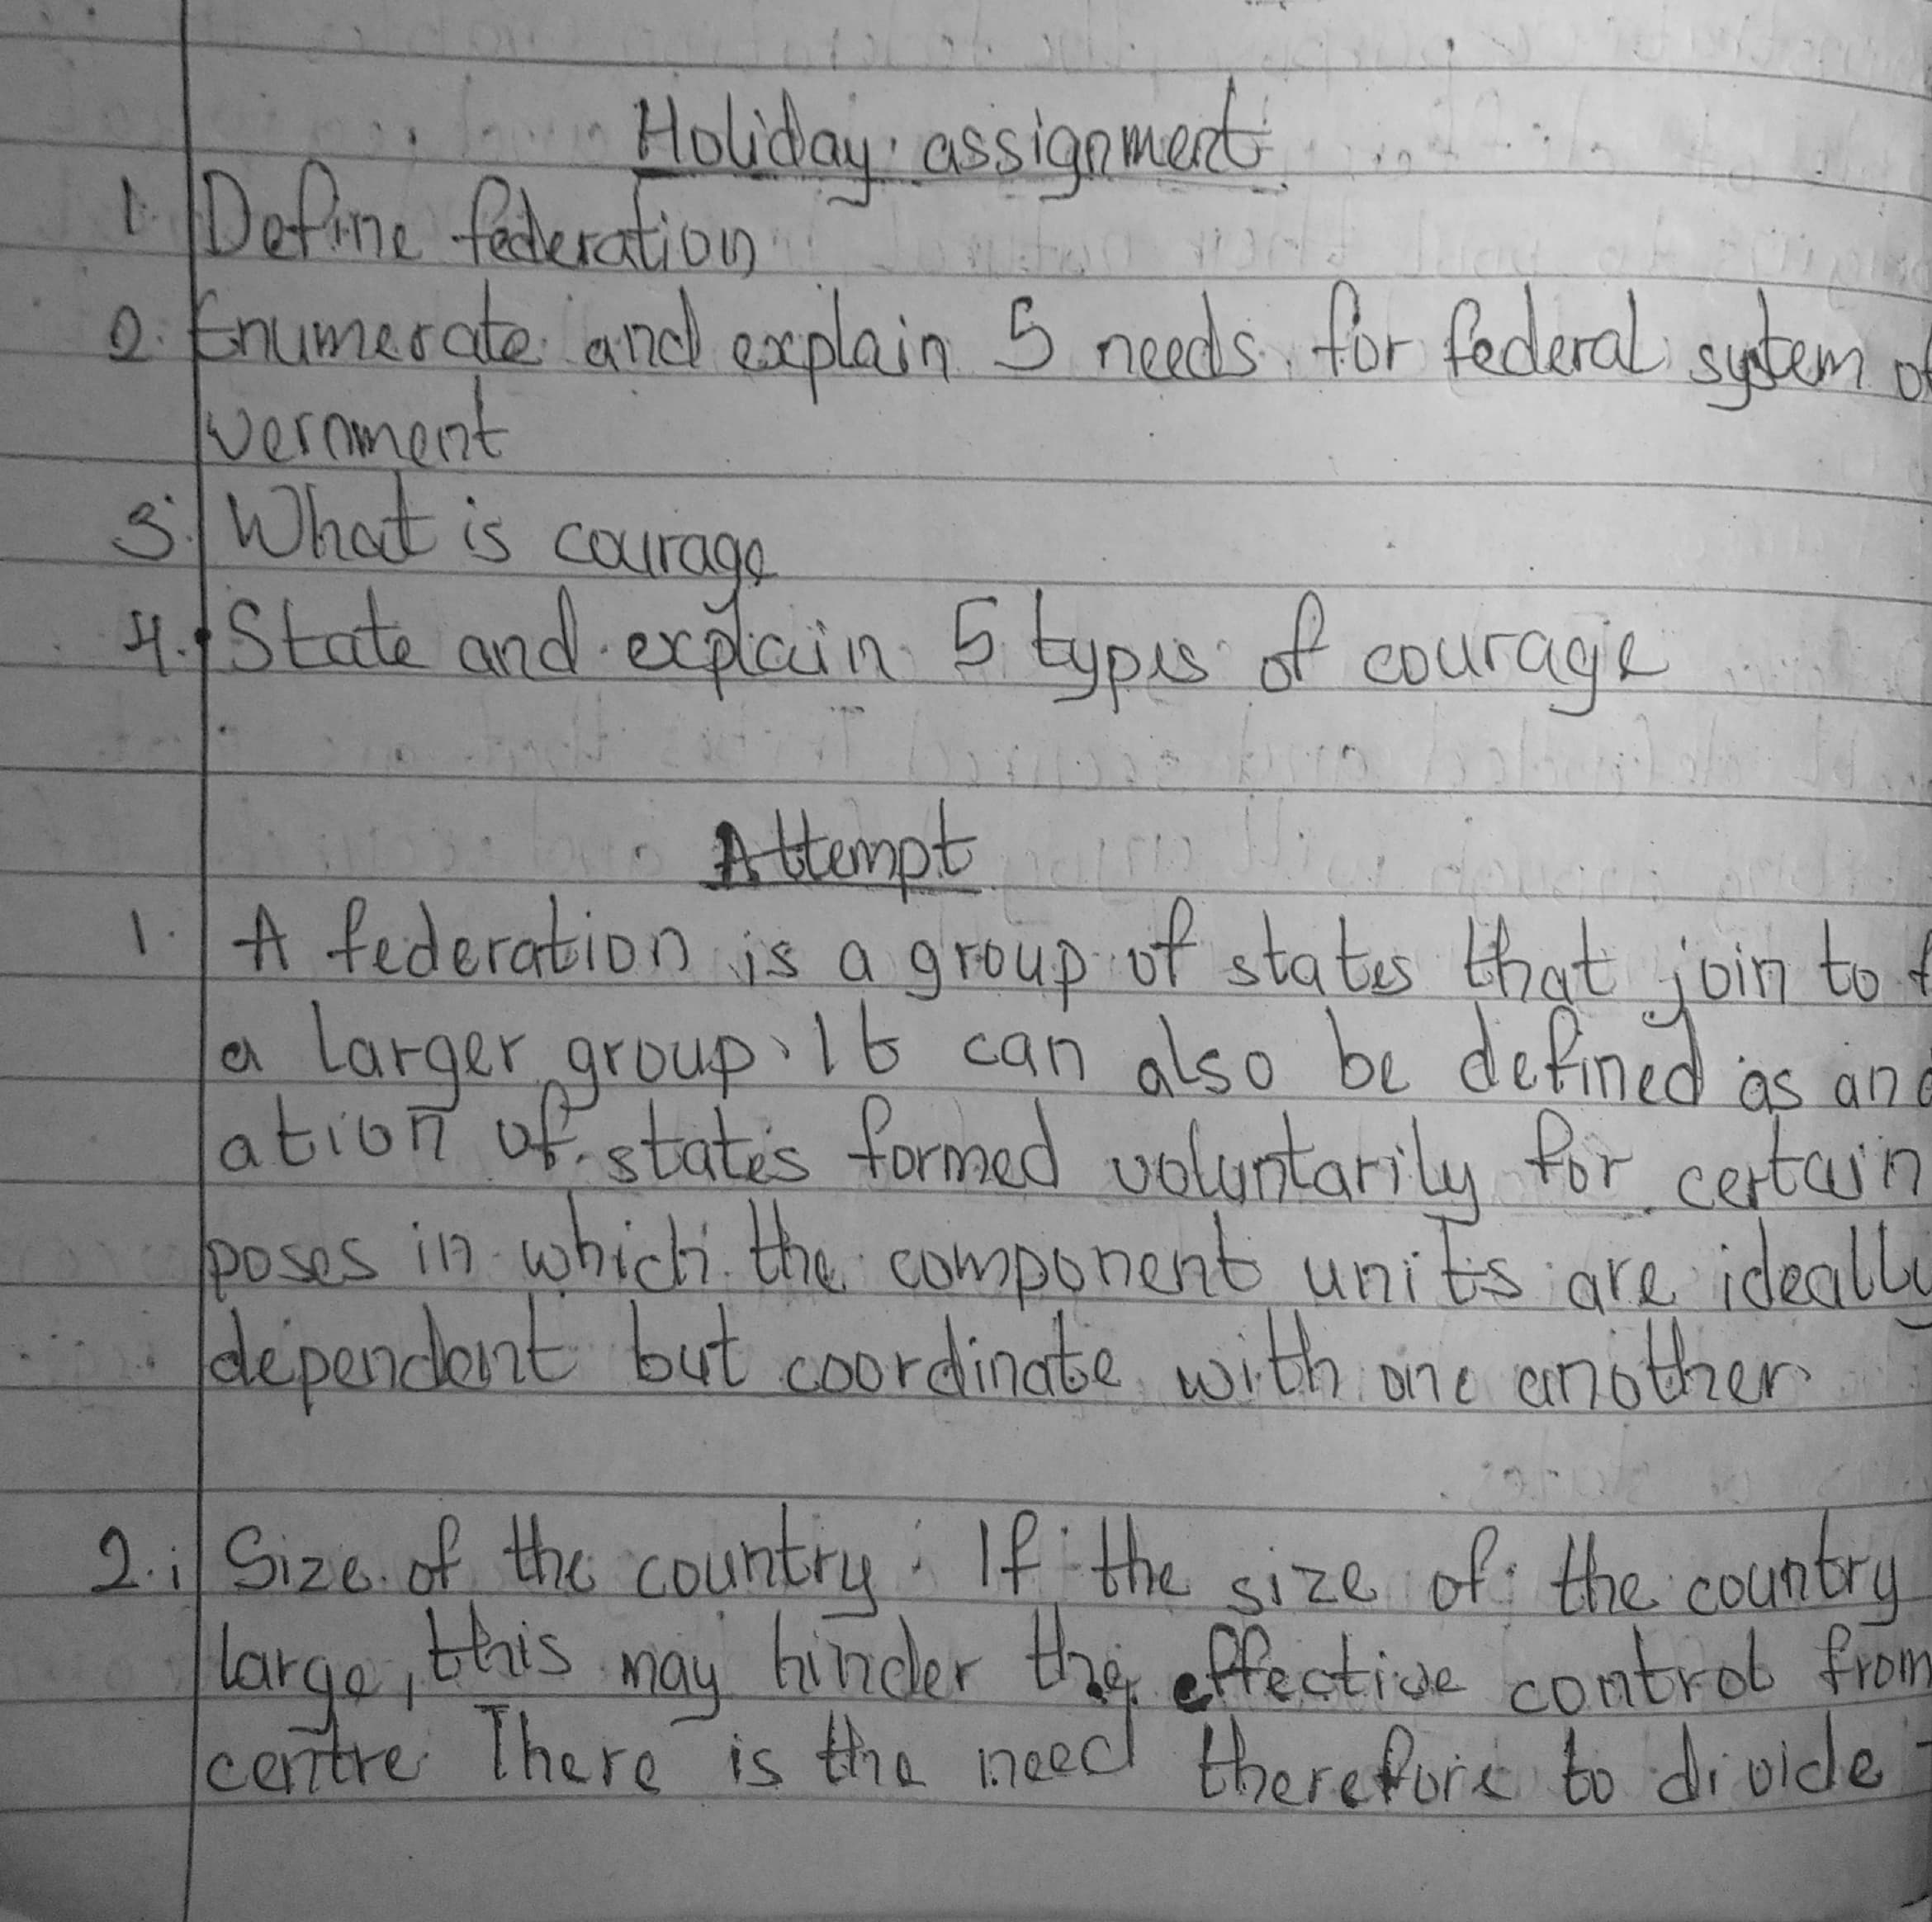 Holiday assignment
1. Define federation
2. Enumerate and explain 5 needs for federal system of
vernment
3. What is courage
4. State and explain 5 types of courage
Attempt
1. A federation is a group of states that join to f
a larger group. It can also be defined as an
ation of states formed voluntarily for certain
poses in which the component units are ideally
dependent but coordinate with one another.
2. i Size of the country: If the size of the country
large, this may hinder the effective control from
centre There is the need therefore to divide